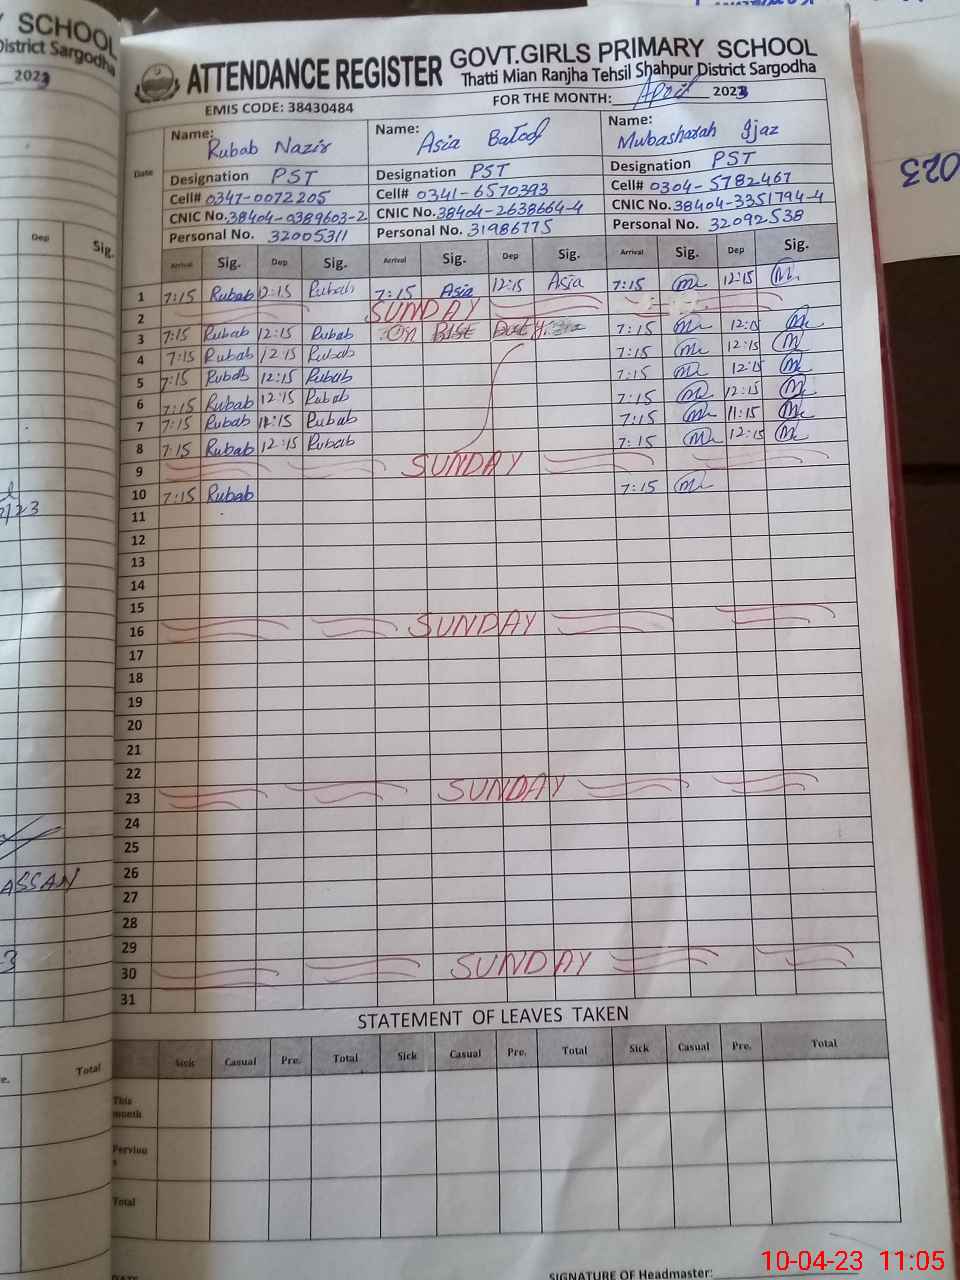 Y SCHOOL
District Sargodha
2023
Dep Sig.
2/23
ASSAN
3
Total
ATTENDANCE REGISTER GOVT.GIRLS PRIMARY SCHOOL
Thatti Mian Ranjha Tehsil Shahpur District Sargodha
EMIS CODE: 38430484 FOR THE MONTH: April 2023
Date
Name: Rubab Nazir Name: Asia Batool Name: Mubasharah Ijaz
Designation PST Designation PST Designation PST
Cell# 0347-0072205 Cell# 0341-6570393 Cell# 0304-5782467
CNIC No. 38404-0389603-2 CNIC No. 38404-2638664-4 CNIC No. 38404-3351794-4
Personal No. 32005311 Personal No. 31986775 Personal No. 32092538
Arrival Sig. Dep Sig. Arrival Sig. Dep Sig. Arrival Sig. Dep Sig.
1 7:15 Rubab 12:15 Rubab 7:15 Asia 12:15 Asia 7:15 12:15
2 SUNDAY
3 7:15 Rubab 12:15 Rubab On 7:15 12:15
4 7:15 Rubab 12:15 Rubab 7:15 12:15
5 7:15 Rubab 12:15 Rubab 7:15 12:15
6 7:15 Rubab 12:15 Rubab 7:15 12:15
7 7:15 Rubab Rubab 7:15 11:15
8 7:15 Rubab 12:15 Rubab 7:15 12:15
9 SUNDAY
10 7:15 Rubab 7:15
11
12
13
14
15
16 SUNDAY
17
18
19
20
21
22
23 SUNDAY
24
25
26
27
28
29
30 SUNDAY
31
STATEMENT OF LEAVES TAKEN
Sick Casual Pre. Total Sick Casual Pre. Total Sick Casual Pre. Total
This month
Perviou s
Total
DATE
SIGNATURE OF Headmaster:
023
10-04-23 11:05